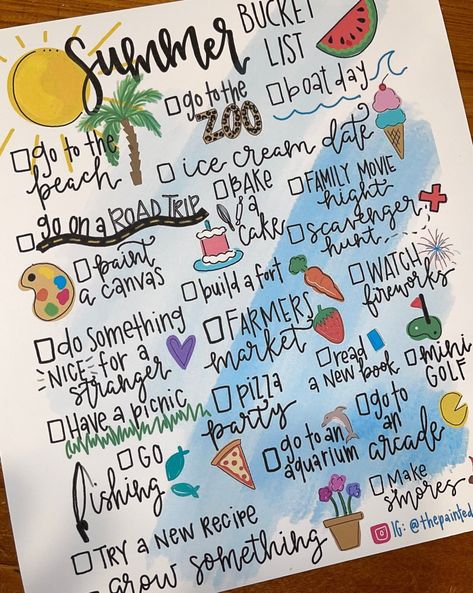 Summer BUCKET LIST
go to the beach
go to the ZOO
boat day
ice cream date
go on a ROAD TRIP
BAKE a cake
FAMILY MOVIE night
scavenger hunt....
paint a canvas
build a fort
WATCH fireworks
do something NICE for a stranger
FARMERS market
read a new book
mini GOLF
HAVE a PICNIC
pizza party
go to an aquarium
go to an arcade
GO fishing
MAKE s'mores
TRY A NEW RECIPE
grow something
IG: @thepainted